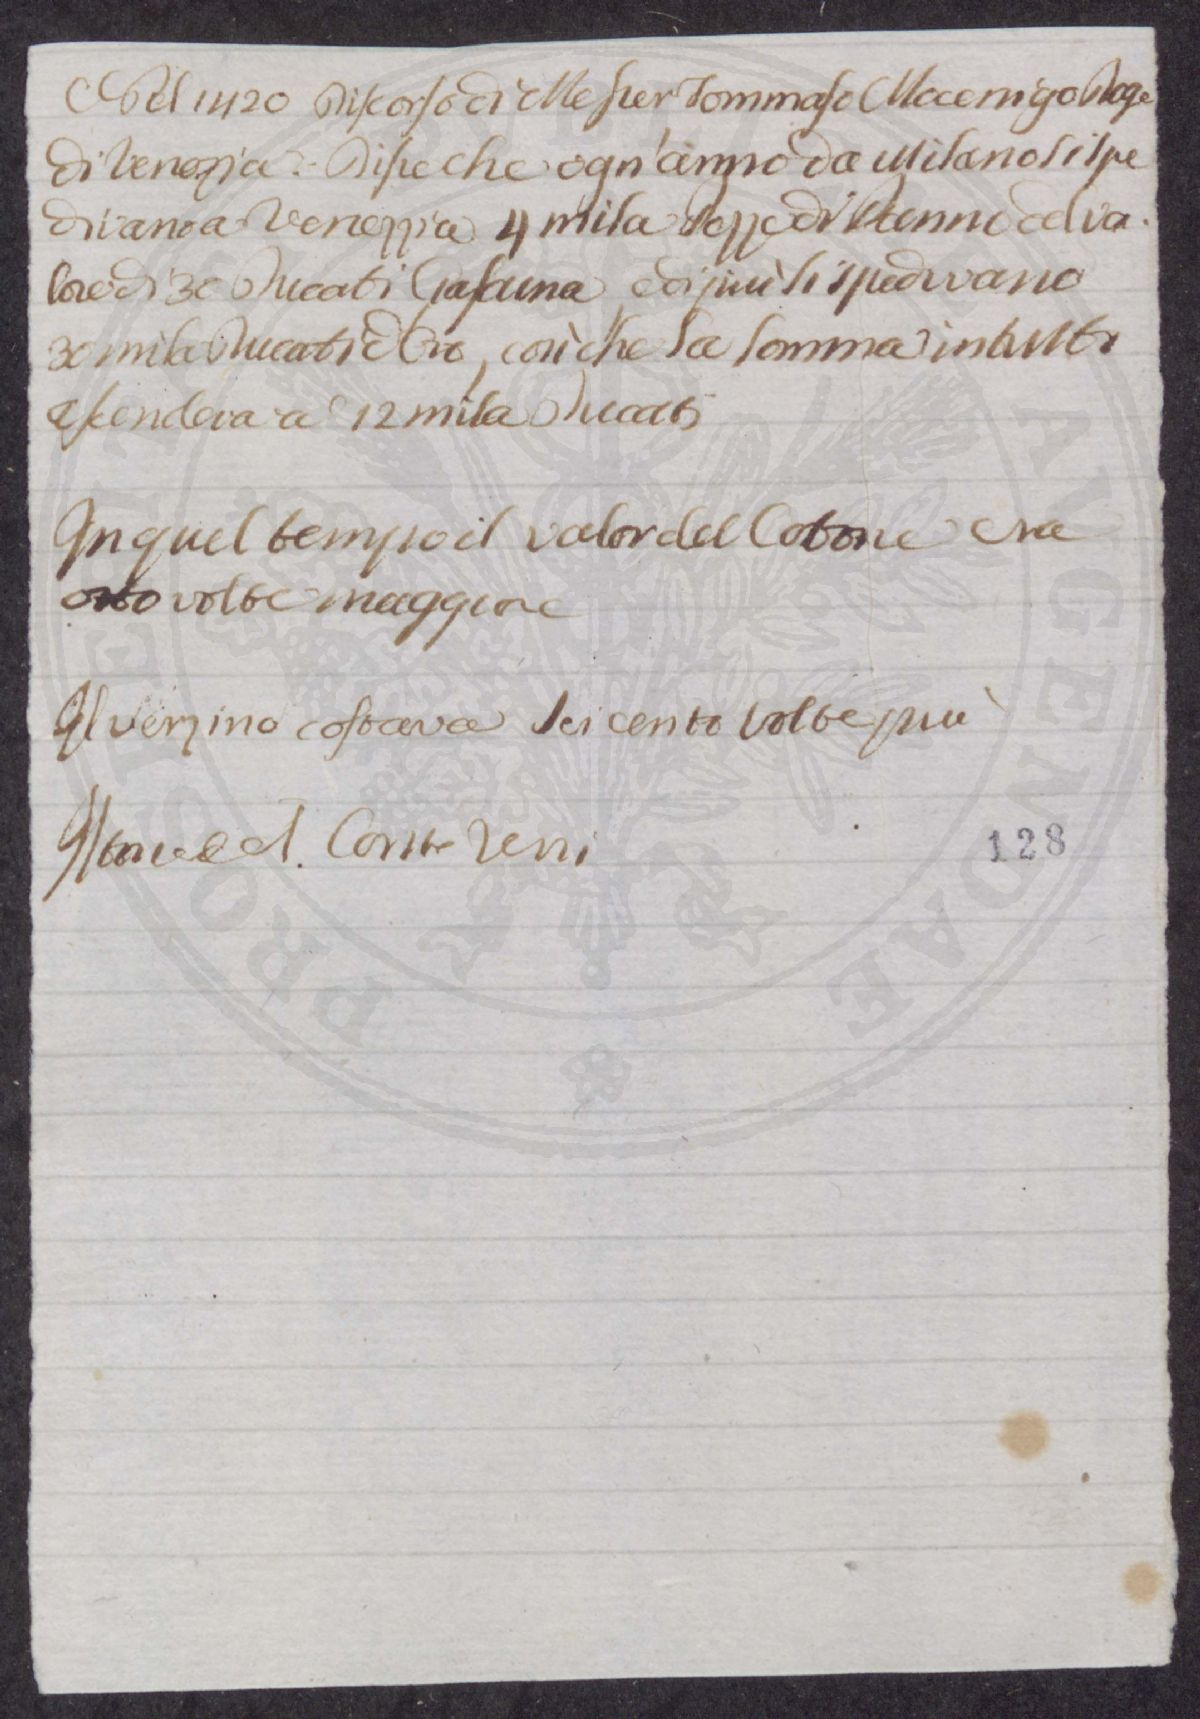 Nel 1420 Discorso di Messer Tommaso Mocenigo Doge
di Venezia. Disse che ogn'anno da Milano si spe
divano a Venezia 4 mila Pezze di Panno del va
lore di 30 Ducati Ciascuna e di più si spedivano
30 mila Ducati d'Oro, cosi che la somma in tutto
ascendeva a 12 mila Ducati
In quel tempo il valor del Cotone era
otto volte maggiore
Il verzino costava sei cento volte più
Conte Verri
128
PROSPERITATI PUBLICAE AUGENDAE